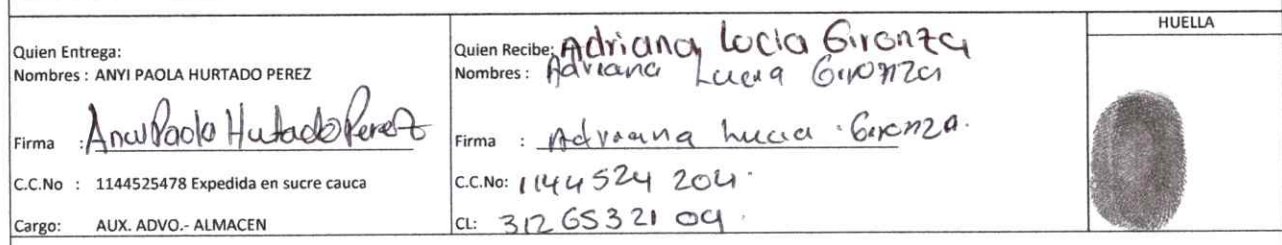 HUELLA
Quien Entrega:
Nombres : ANYI PAOLA HURTADO PEREZ
Firma : Anyi Paola Hurtado Perez
C.C.No : 1144525478 Expedida en sucre cauca
Cargo: AUX. ADVO.- ALMACEN
Quien Recibe: Adriana Lucia Gironza
Nombres : Adriana Lucia Gironza
Firma : Adriana Lucia Gironza.
C.C.No: 1144 524 204.
CL: 312 6532109.